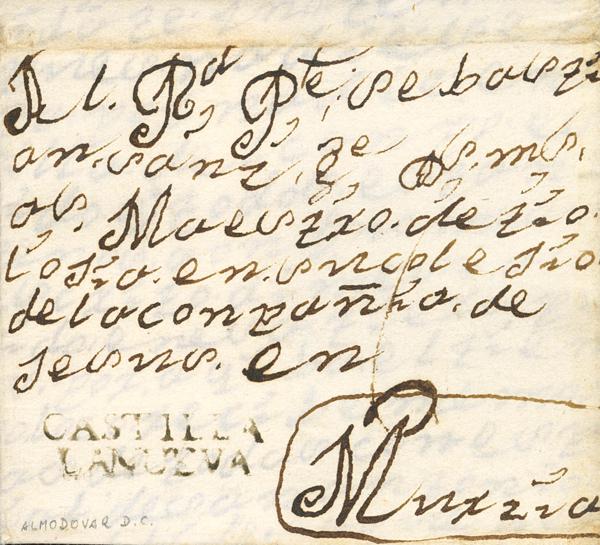 Al. Rd, Pe, sebasti
an. sanz. ge Ds. ms.
as. Maestro. de tio.
losia. en. su colesio
de la conpañia. de
Jesus. en
CASTILLA
LANUEVA
Murzia
ALMODOVAR D.C.